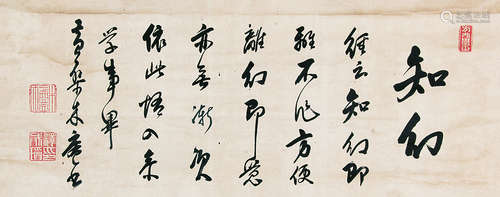 知幻
經云知幻即
離不作方便
離幻即覺
亦無漸次
依此悟入參
学事畢
黄檗木庵書